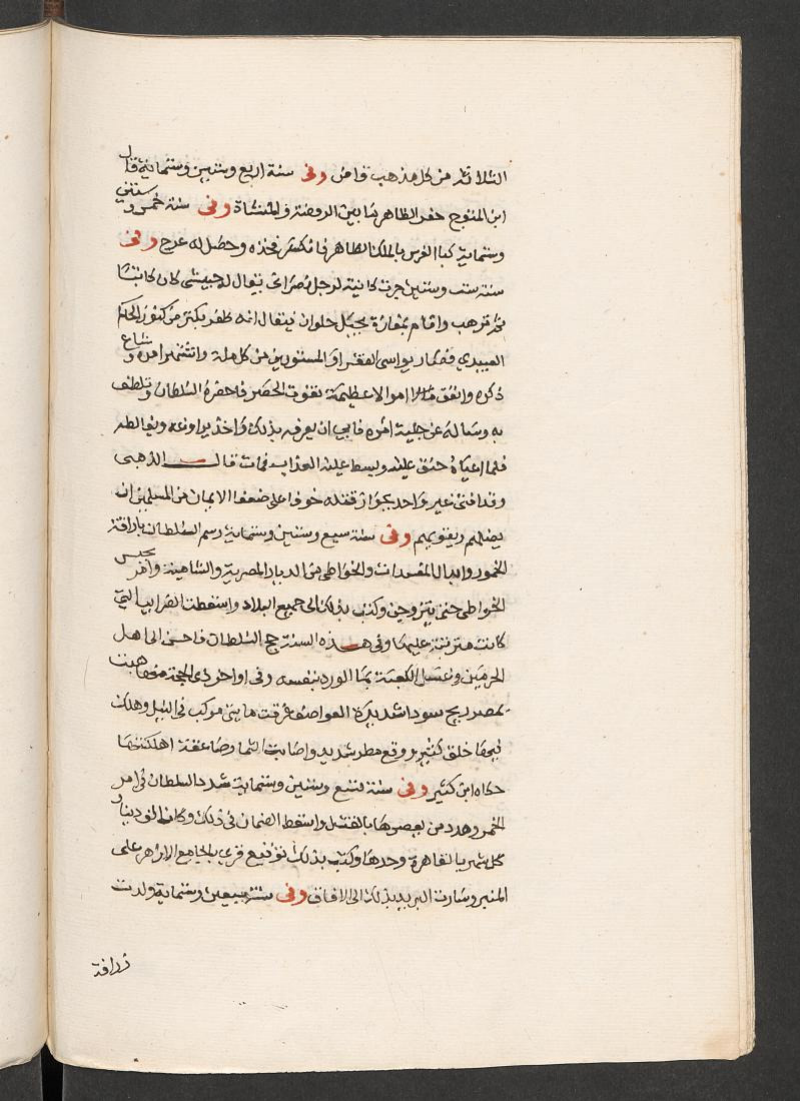 الثلاثة من كل مذهب قاض وفى سنة اربع وستين وستماية قال
ابن المتوج حفر الظاهر ما بين الروضة والمنشاة وفى سنة خمس وستين
وستماية كبا الفرس بالملك الظاهر فانكسر فخذه وحصل له عرج وفى
سنة ست وستين جرت كاينة لرجل نصرانى يقال له حبيش كان كاتبا
ثم ترهب واقام بمغارة بجبل حلوان فيقال انه ظفر بكنز من كنوز الحاكم
العبيدى فصار يواسى الفقرا والمستورين من كل ملة وانتشر امره وشاع
ذكره وانفق اموالا عظيمة تفوت الحصر فاحضره السلطان وتلطف
به وساله عن جلية امره فابى ان يعرفه بذلك واخذ يراوغه ويغالطه
فلما اعياه حنق عليه وبسط عليه العذاب فمات قال الذهبى
وقد افتى غير واحد بجواز قتله خوفا على ضعفا الايمان من المسلمين ان
يضلهم ويغويهم وفى سنة سبع وستين وستماية رسم السلطان باراقة
الخمور وابطال المفسدات والخواطى من الديار المصرية والشامية وامر بحبس
الخواطى حتى يتزوجن وكتب بذلك الى جميع البلاد واسقطت الضرايب التى
كانت مترتبة عليها وفى هذه السنة حج السلطان فاحسن الى اهل
الحرمين وغسل الكعبة بما الورد بنفسه وفى اواخر ذى الحجة منها هبت
بمصر ريح سودا شديدة العواصف غرقت مايتى مركب فى النيل وهلك
فيها خلق كثير ووقع مطر شديد واصابت الثما رصاعقة اهلكتها
حكاه ابن كثير وفى سنة تسع وستين وستماية شدد السلطان فى امر
الخمر وهدد من يعصرها بالقتل واسقط الضمان فى ذلك وكان الف دينار
كل شهر بالقاهرة وحدها وكتب بذلك توقيع قرى بالجامع الازهر على
المنبر وسارت البريد بذلك الى الافاق وفى سنة سبعين وستماية ولدت
زرافة